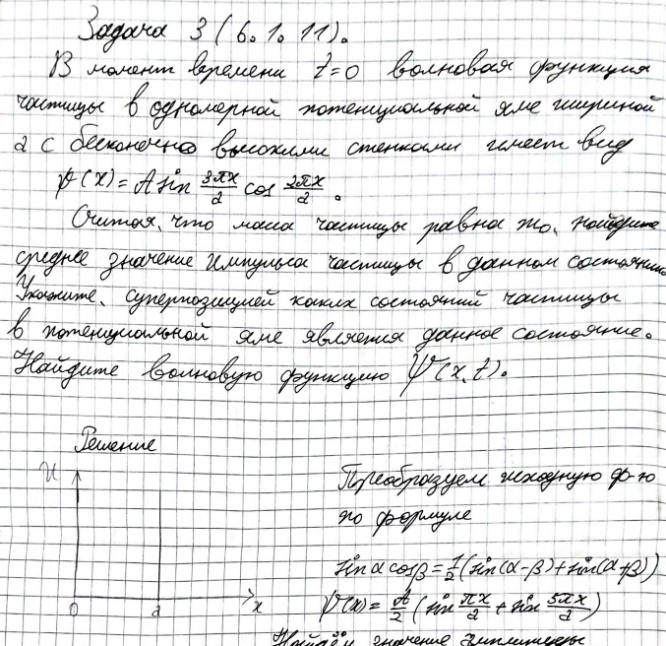 Задача 3 (6.1.11).
В момент времени t=0 волновая функция
частицы в одномерной потенциальной яме шириной
a с бесконечно высокими стенками имеет вид
ψ(x) = A sin 3πx/a cos 2πx/a.
Считая, что масса частицы равна m₀, найдите
среднее значение импульса частицы в данном состоянии
Укажите, суперпозицией каких состояний частицы
в потенциальной яме является данное состояние.
Найдите волновую функцию Ψ(x,t).
Решение
U
0 a x
Преобразуем исходную ф-ю
по формуле
sin α cos β = 1/2 (sin(α-β) + sin(α+β))
ψ(x) = A/2 (sin πx/a + sin 5πx/a)
Найдём значение амплитуды